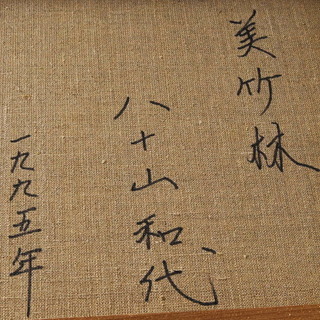 美竹林
八十山和代
一九九五年